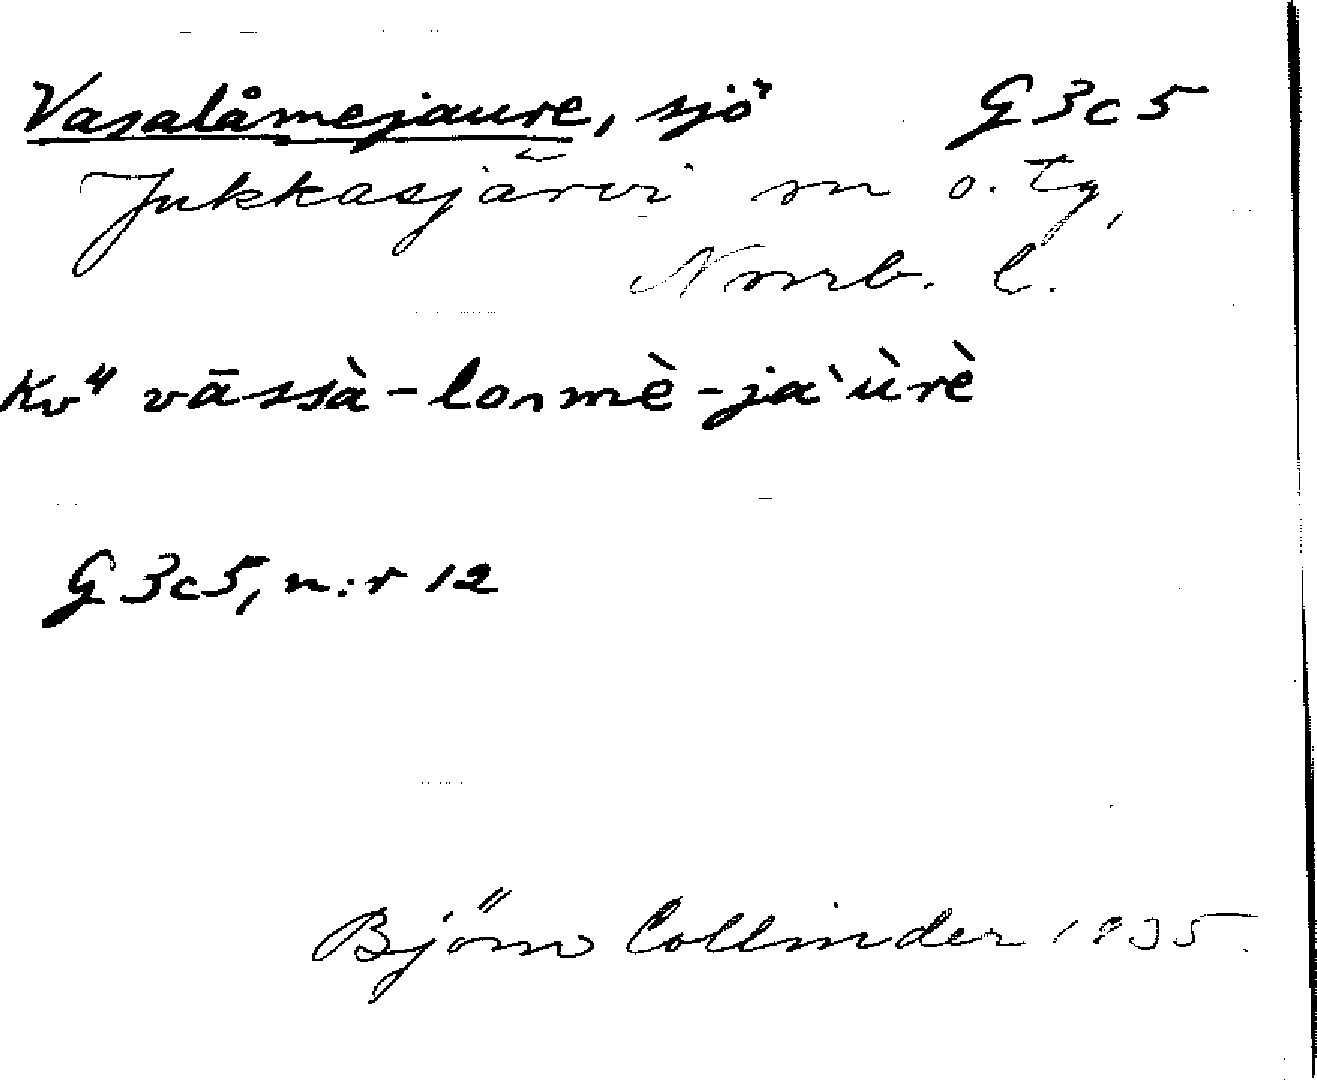 Vasalåmejaure, sjö G3c5
Jukkasjärvi sn o. tg,
Norrb. l.
Kv" vāssà-lonmè-ja`ùrè
G3c5, n:r 12
Björn Collinder 1935.